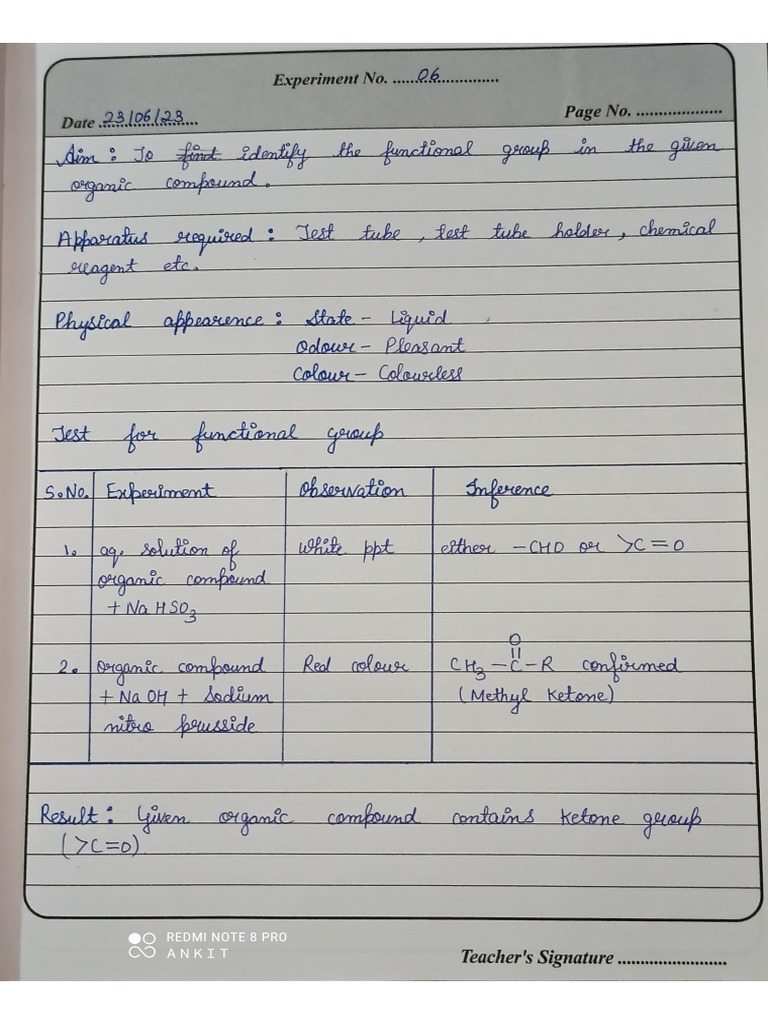 Experiment No. ......06................
Date 23/06/23......
Page No. ...................
Aim : To find identify the functional group in the given
organic compound.
Apparatus required : Test tube, test tube holder, chemical
reagent etc.
Physical appearence : State – Liquid
Odour – Pleasant
Colour – Colourless
Test for functional group
S.No. Experiment Observation Inference
1. aq. solution of White ppt either –CHO or >C=O
organic compound
+ NaHSO3
O
2. Organic compound Red colour CH3–C–R confirmed
+ NaOH + Sodium (Methyl Ketone)
nitro prusside
Result : Given organic compound contains ketone group
(>C=O)
REDMI NOTE 8 PRO
ANKIT
Teacher's Signature ........................